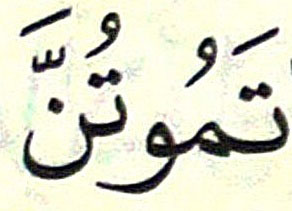 تَمُوتُنَّ